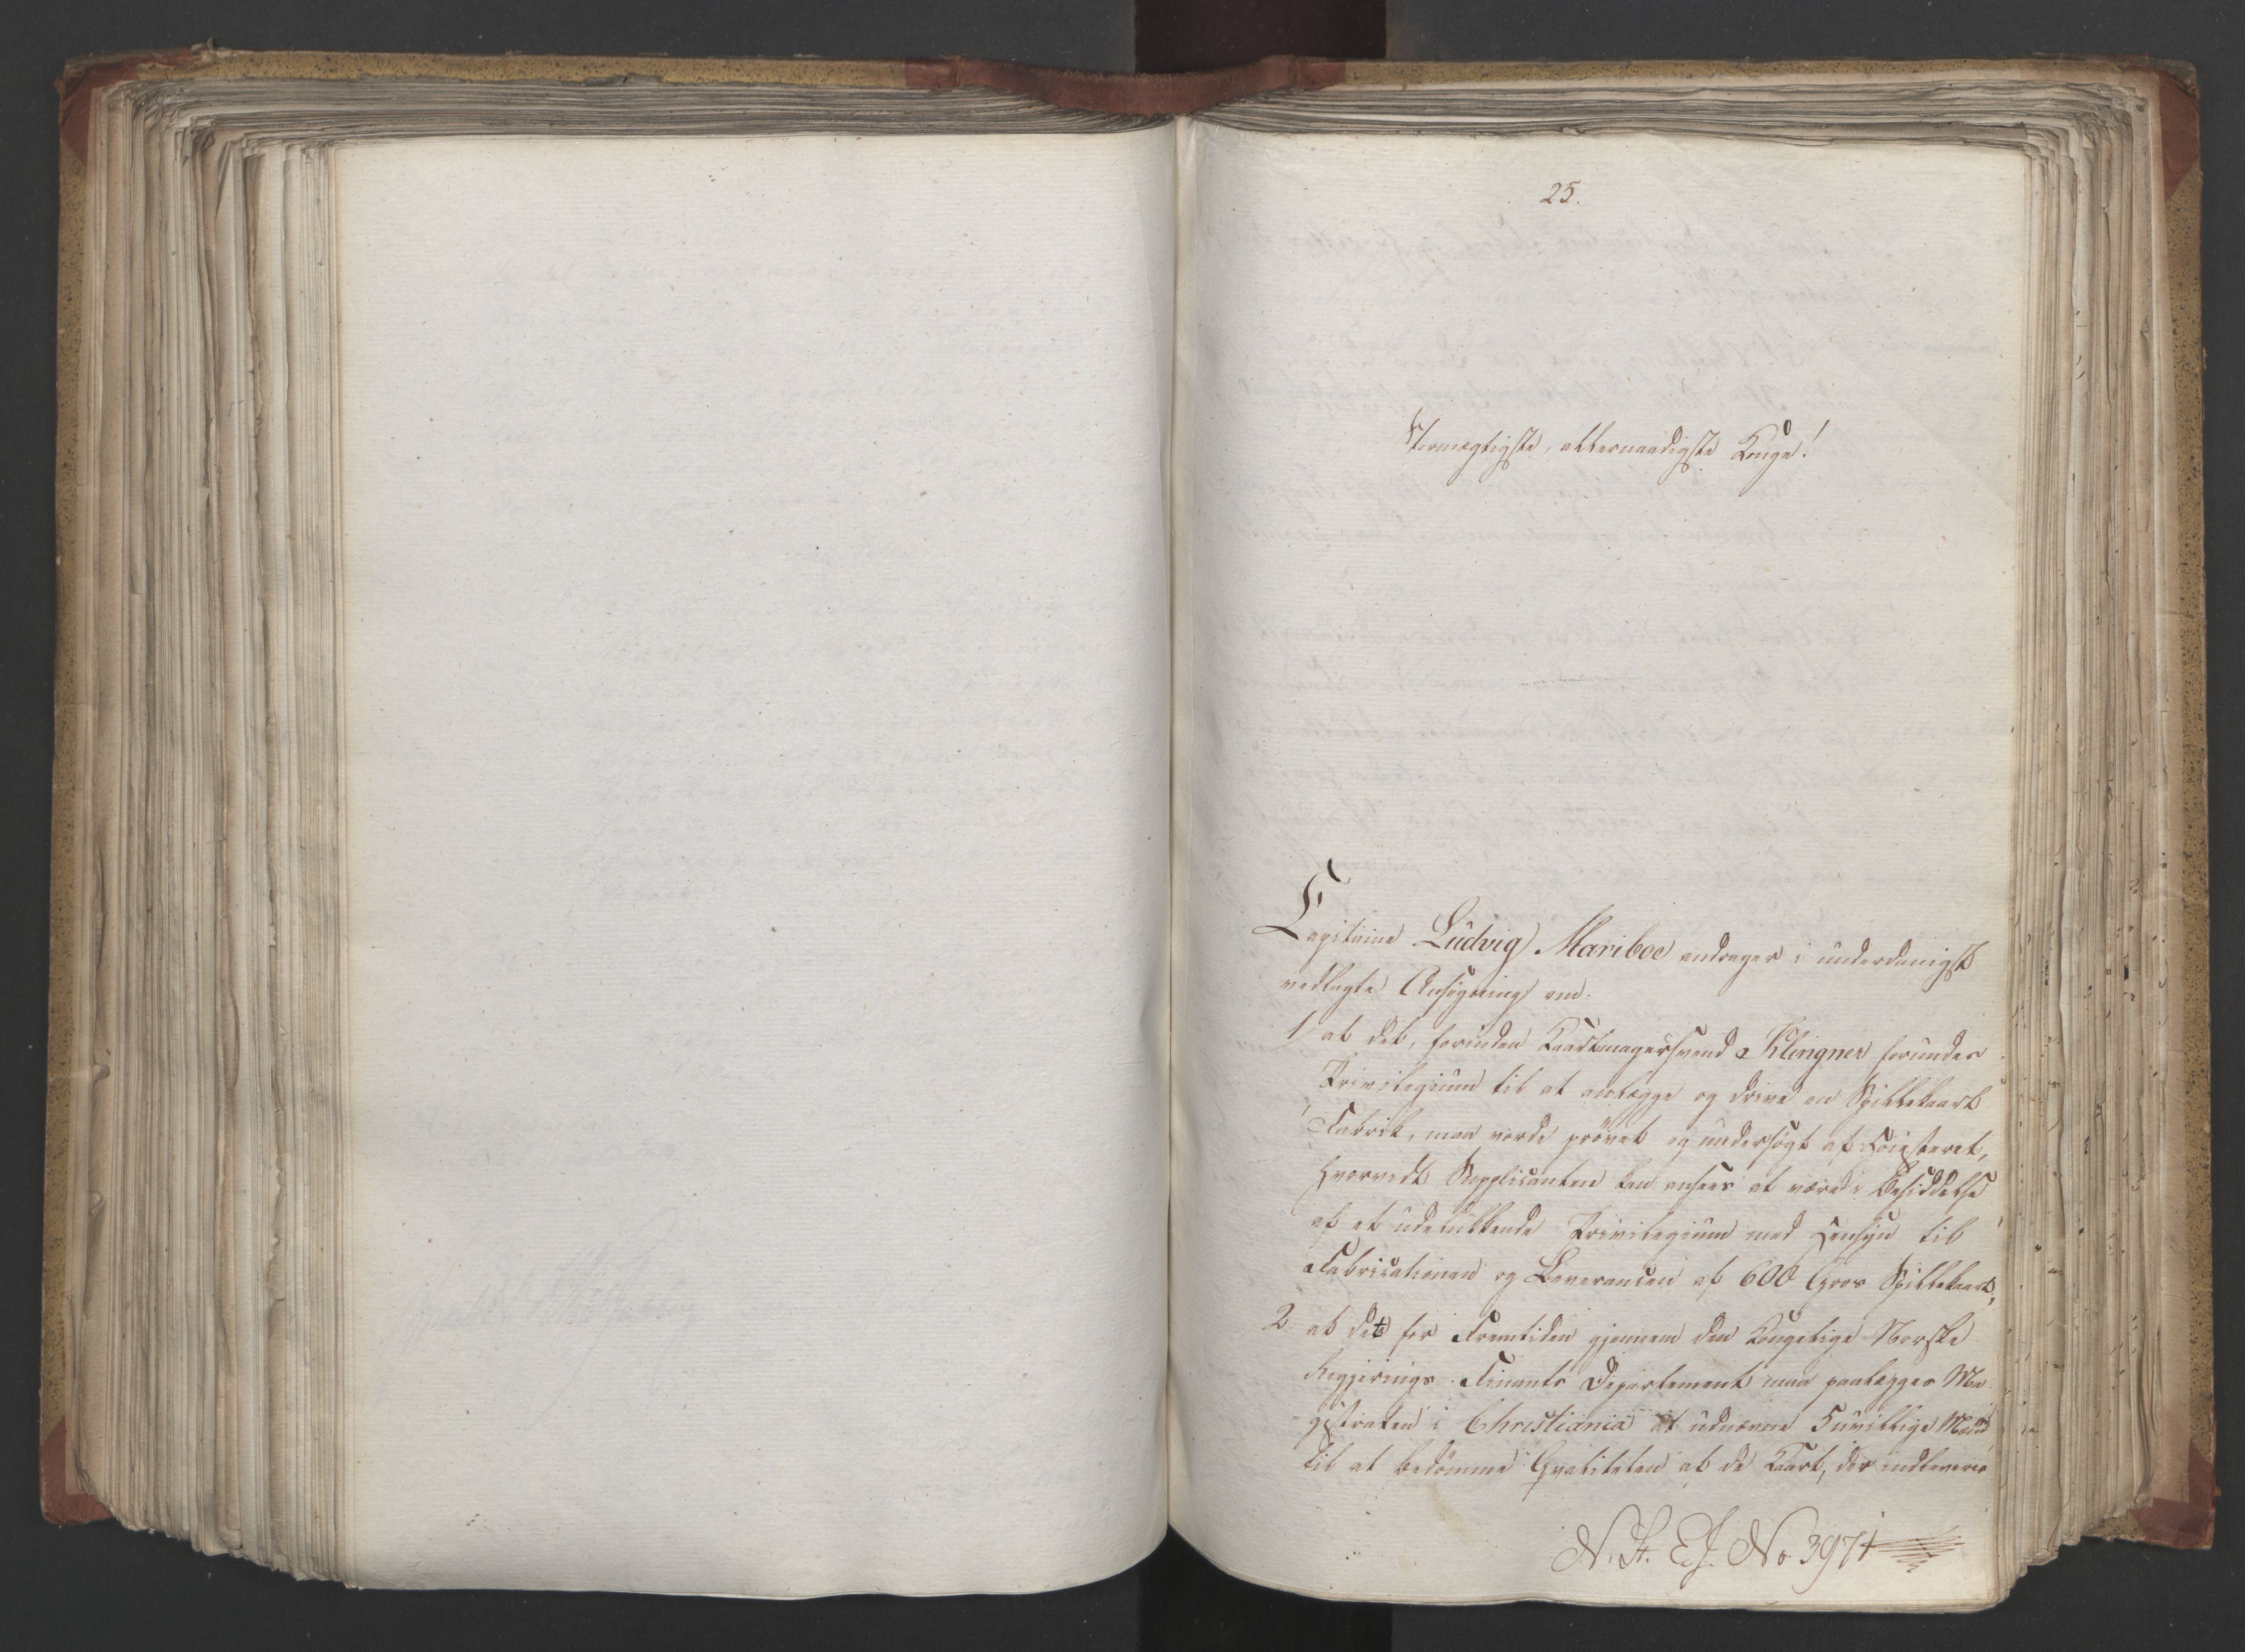 25.
Stormægtigste, allernaadigste Konge!
Capitaine Ludvig Mariboe andrager i underdanigst
vedlagte Ansøgning om.
1/ at det, forinden Kaartmagersvend Klingner forundes
Privilegium til at anlægge og drive en Spillekaart
Fabrik, maa vorde prövet og undersögt af Höiesteret,
hvorvidt Supplicanten kan ansees at være i Besiddelse
af et udelukkende Privilegium med Hensyn til
Fabricationen og Leverancen af 600 Gros Spillekaart,
2 at det for Fremtiden gjennem den Kongelige Norske
Regjerings Finants Departement maa paalægges Ma
gistraten i Christiania at udnævne 5 uvillige Mænd
til at bedömme Qvaliteten af de Kaart, der indleveres
N. H. E. J. No. 3971